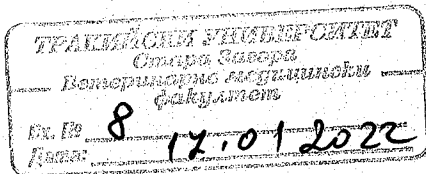 ТРАКИЙСКИ УНИВЕРСИТЕТ
Стара Загора
Ветеринарно медицински
факултет
Вх. № 8
Дата: 17.01 2022